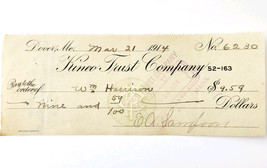 Dover, Mo. Mar 21 1914 No. 6230
Kinco Trust Company 52-163
Pay to the order of Wm Harrison $9.59
Nine and 59/100 Dollars
E.A. Sampson